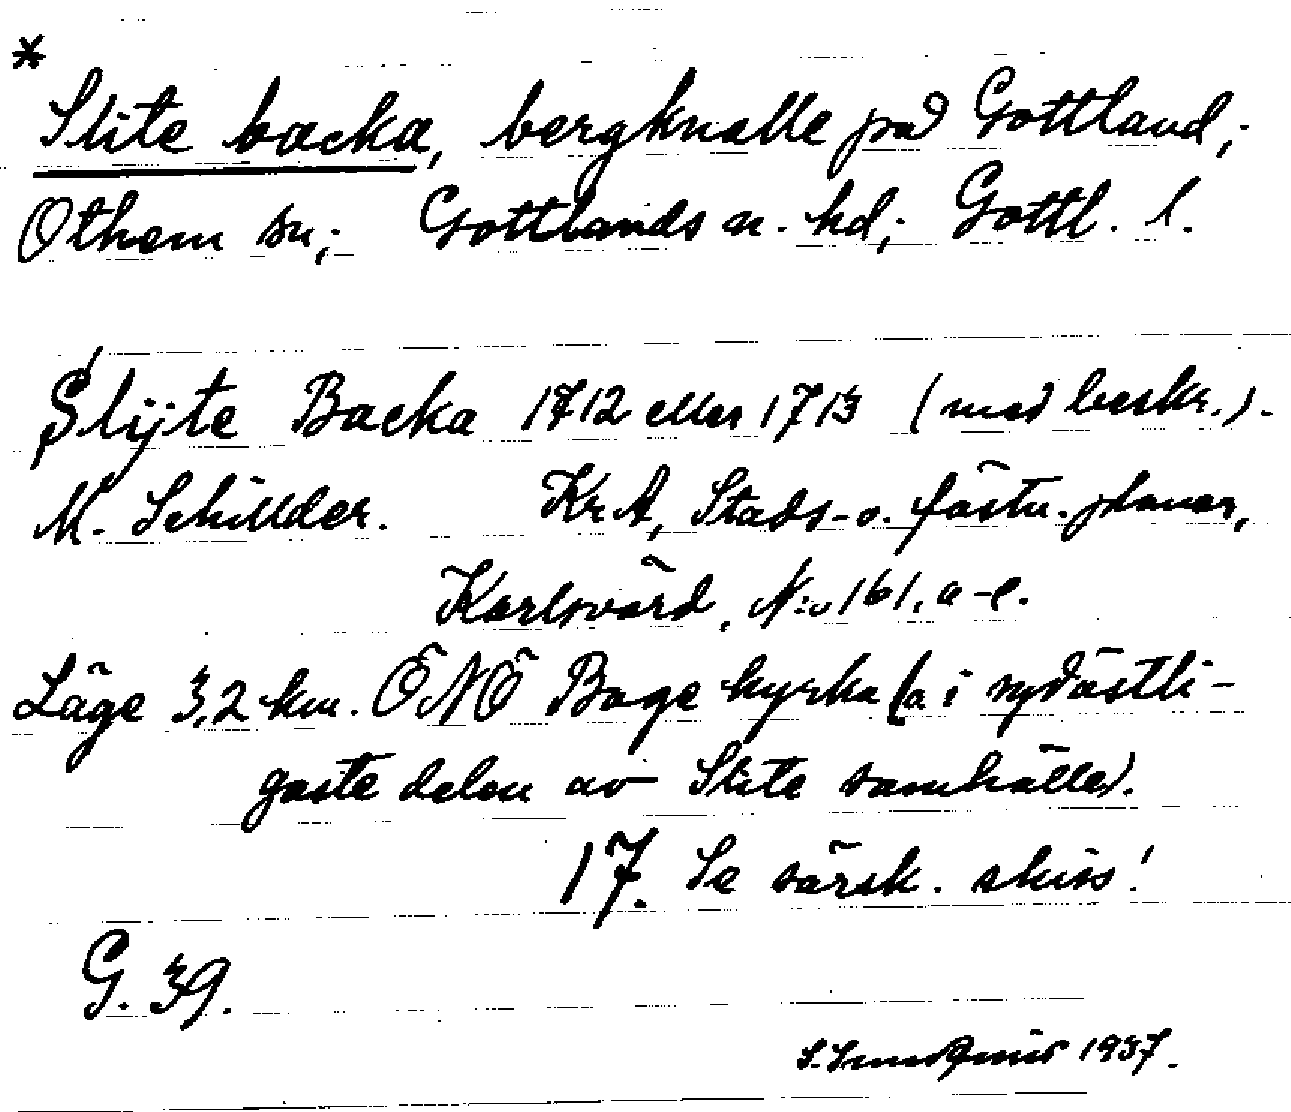 *
Slite backa, bergknalle på Gottland,
Othem sn; Gottlands n. hd; Gottl. l.
Slijte Backa 1712 eller 1713 (med beskr.).
M. Schillder. Kr A, Stads- o. fästn. planer,
Karlsvärd, N:o 161, a-e.
Läge 3,2 km. ÖNÖ Boge kyrka (a i sydöstli-
gaste delen av Slite samhälle).
17. Se särsk. skiss!
G. 39.
S. 1937.